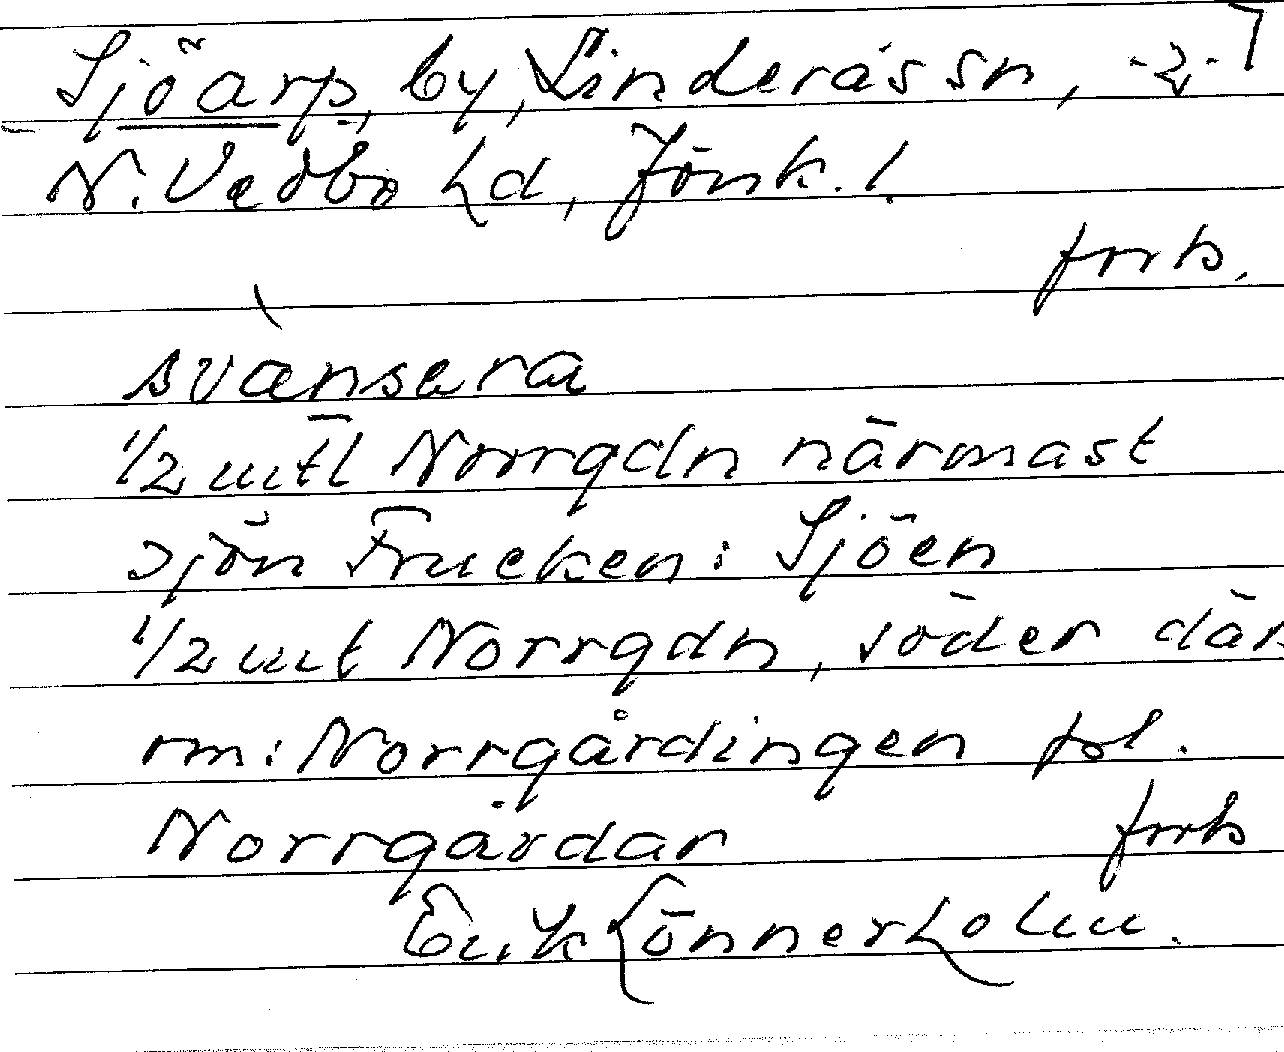 Sjöarp, by, Linderås sn, -2-
N. Vedbo hd, Jönk. l.
forts.
svansera
1/2 mtl Norrgdn närmast
sjön Frucken: Sjöen
1/2 mt Norrgdn, söder där
rm: Norrgårdingen pl.
Norrgårdar forts
Erik Lönnerholm.